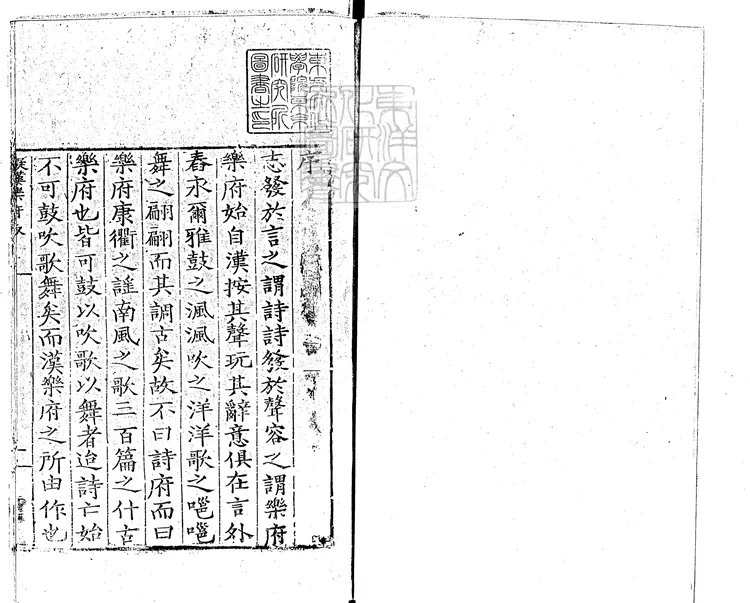 序
志發於言之謂詩詩發於聲容之謂樂府
樂府始自漢按其聲玩其辭意俱在言外
舂永爾雅鼓之渢渢吹之洋洋歌之嗈嗈
舞之翩翩而其調古矣故不曰詩府而曰
樂府康衢之謠南風之歌三百篇之什古
樂府也皆可鼓以吹歌以舞者迨詩亡始
不可鼓吹歌舞矣而漢樂府之所由作也
東方文化學院東京研究所圖書之印